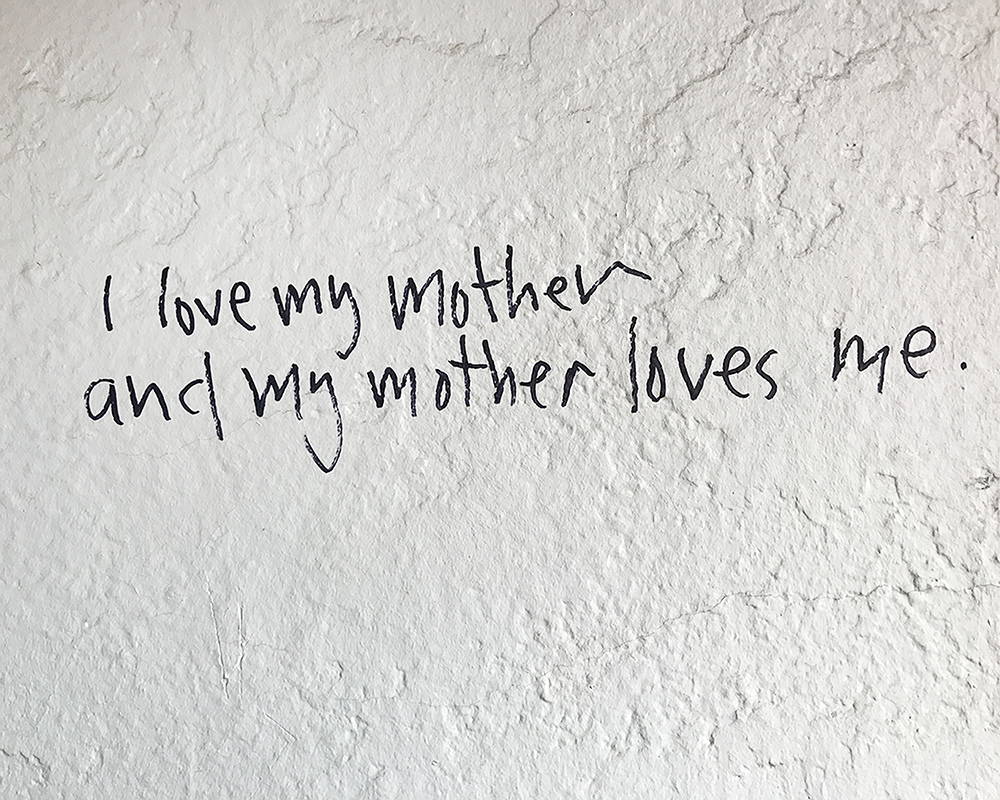 I love my mother
and my mother loves me.